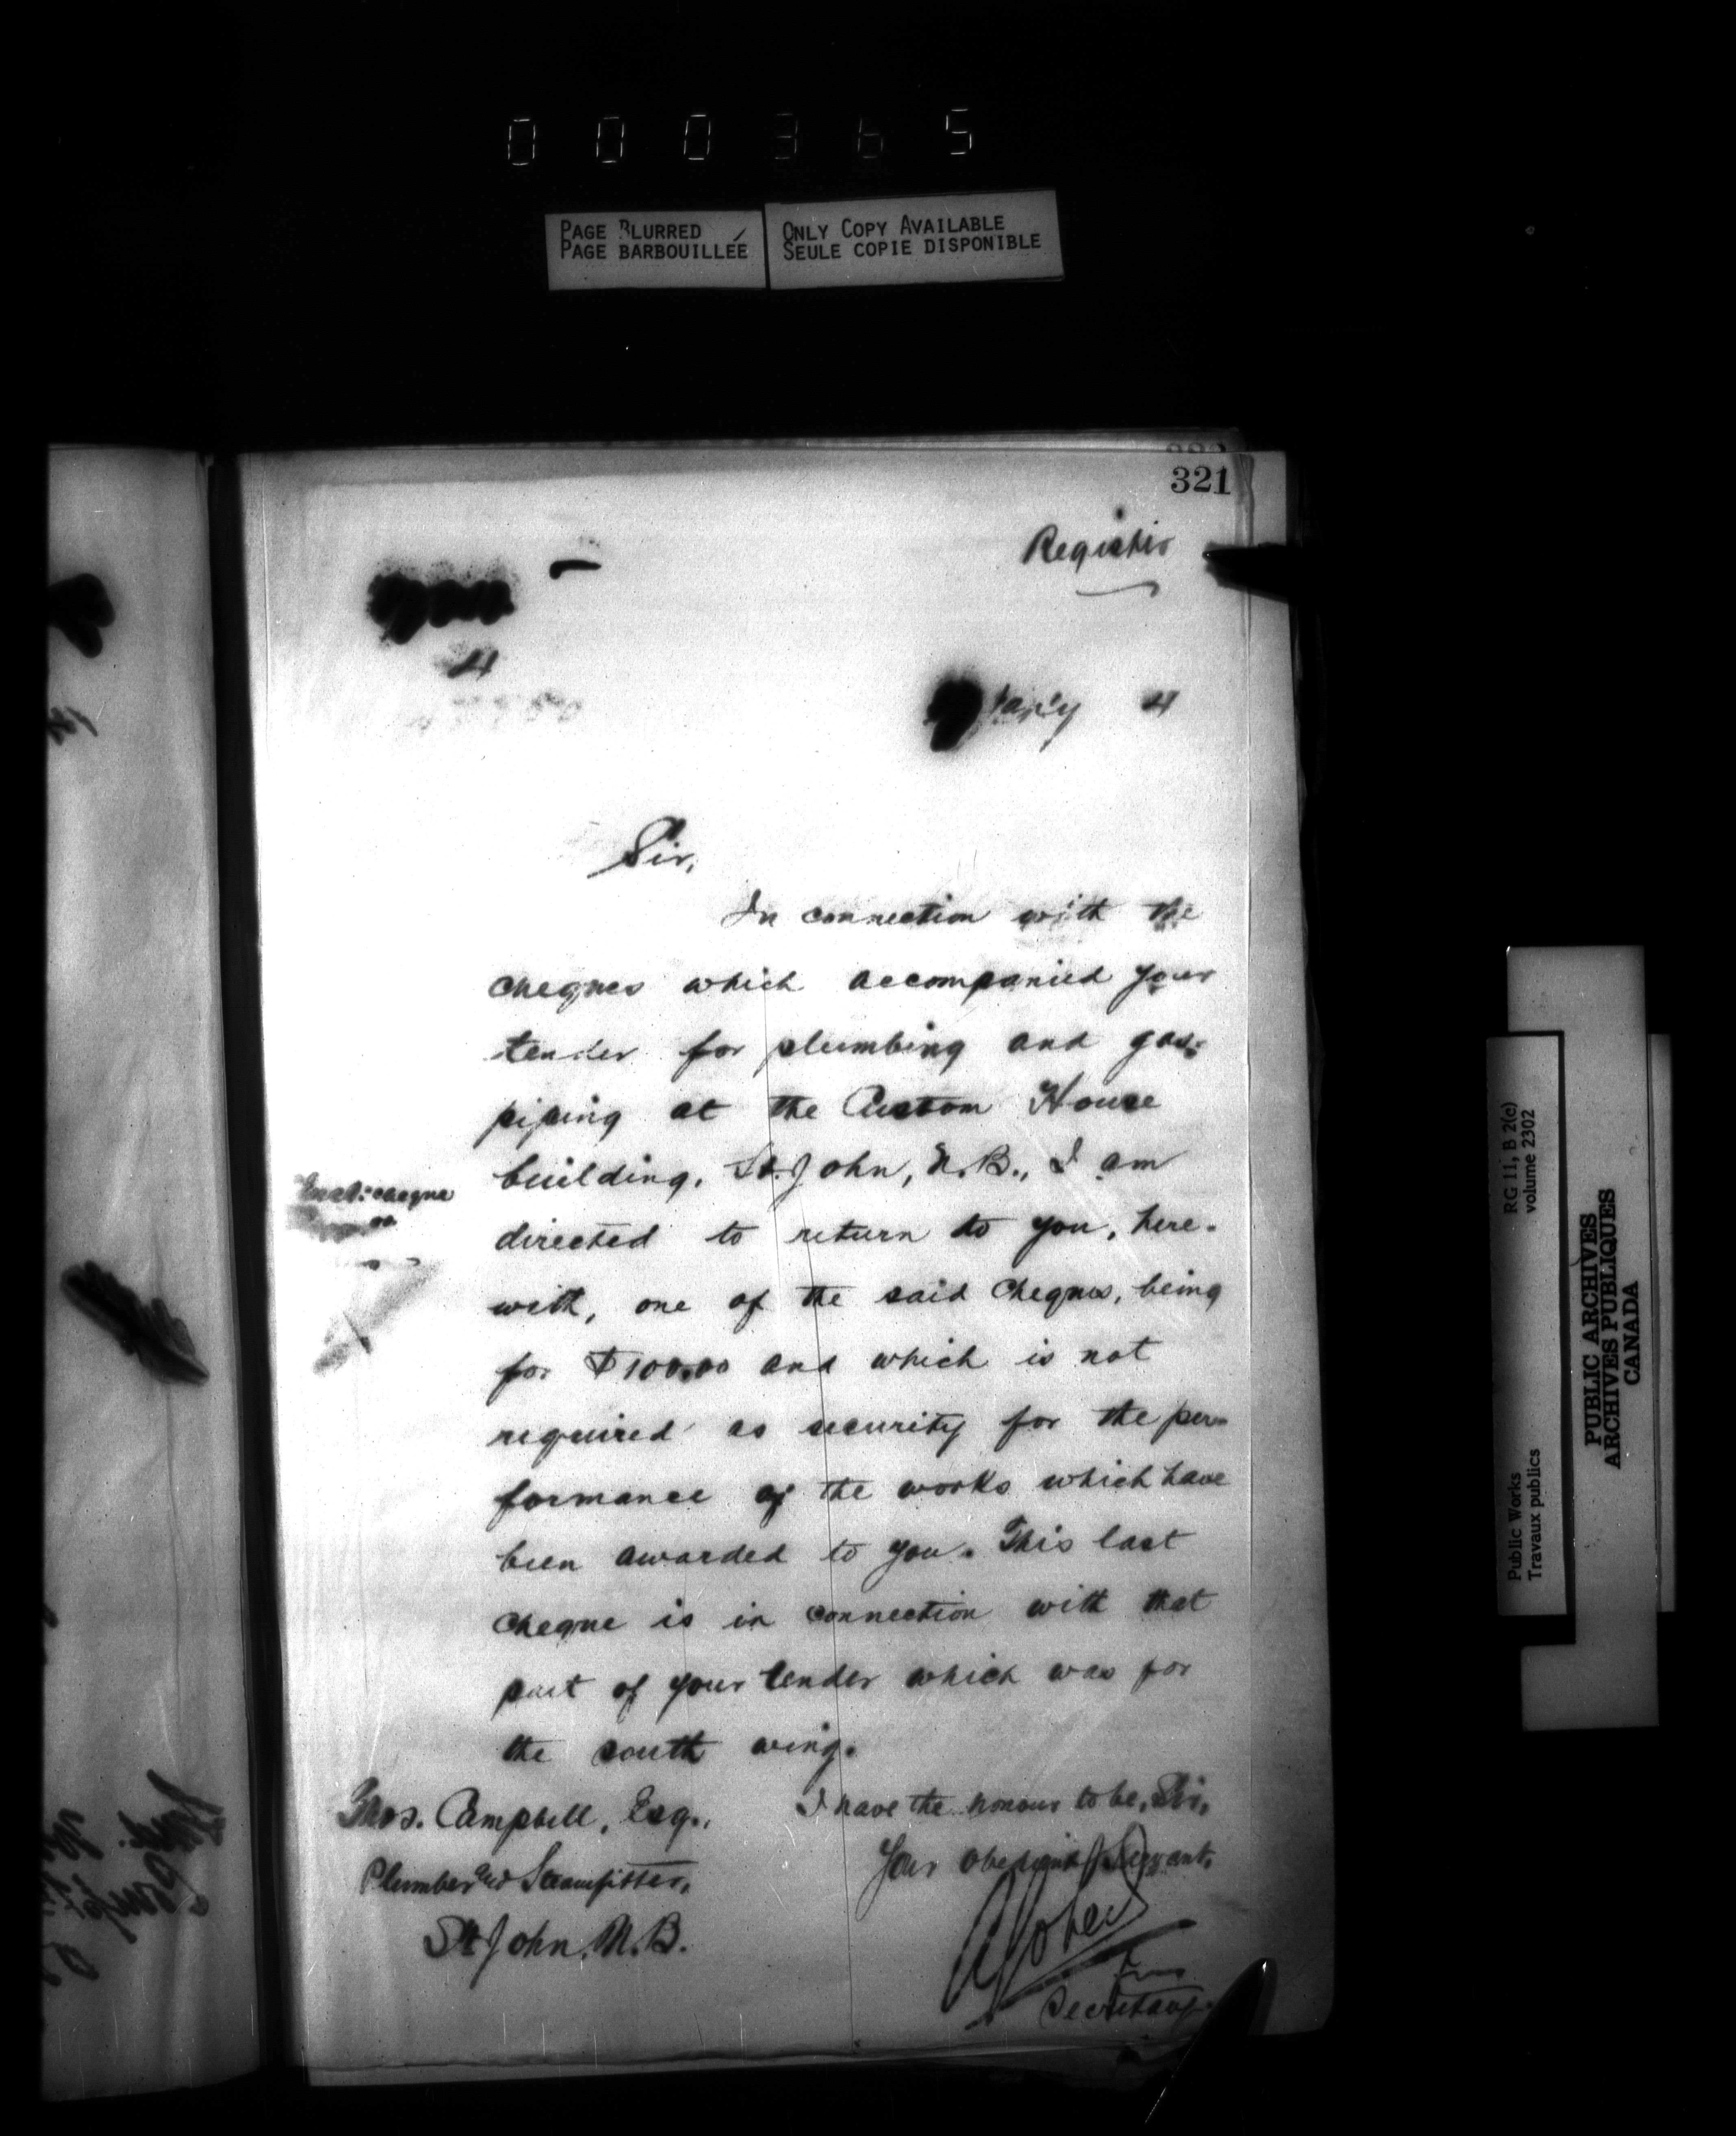 000365
PAGE BLURRED
PAGE BARBOUILLÉE
ONLY COPY AVAILABLE
SEULE COPIE DISPONIBLE
321
Register
Jan'y 4
Sir,
In connection with the
cheques which accompanied your
tender for plumbing and gas-
piping at the Custom House
building, St. John, N.B., I am
directed to return to you, here-
with, one of the said cheques, being
for $100.00 and which is not
required as security for the per-
formance of the works which have
been awarded to you. This last
cheque is in connection with that
part of your tender which was for
the south wing.
I have the honour to be, Sir,
Your obedient Servant,
Secretary.
Thos. Campbell, Esq.,
Plumber and Steamfitter,
St. John, N.B.
cheque
RG 11, B 2(c)
volume 2302
Public Works
Travaux publics
PUBLIC ARCHIVES
ARCHIVES PUBLIQUES
CANADA